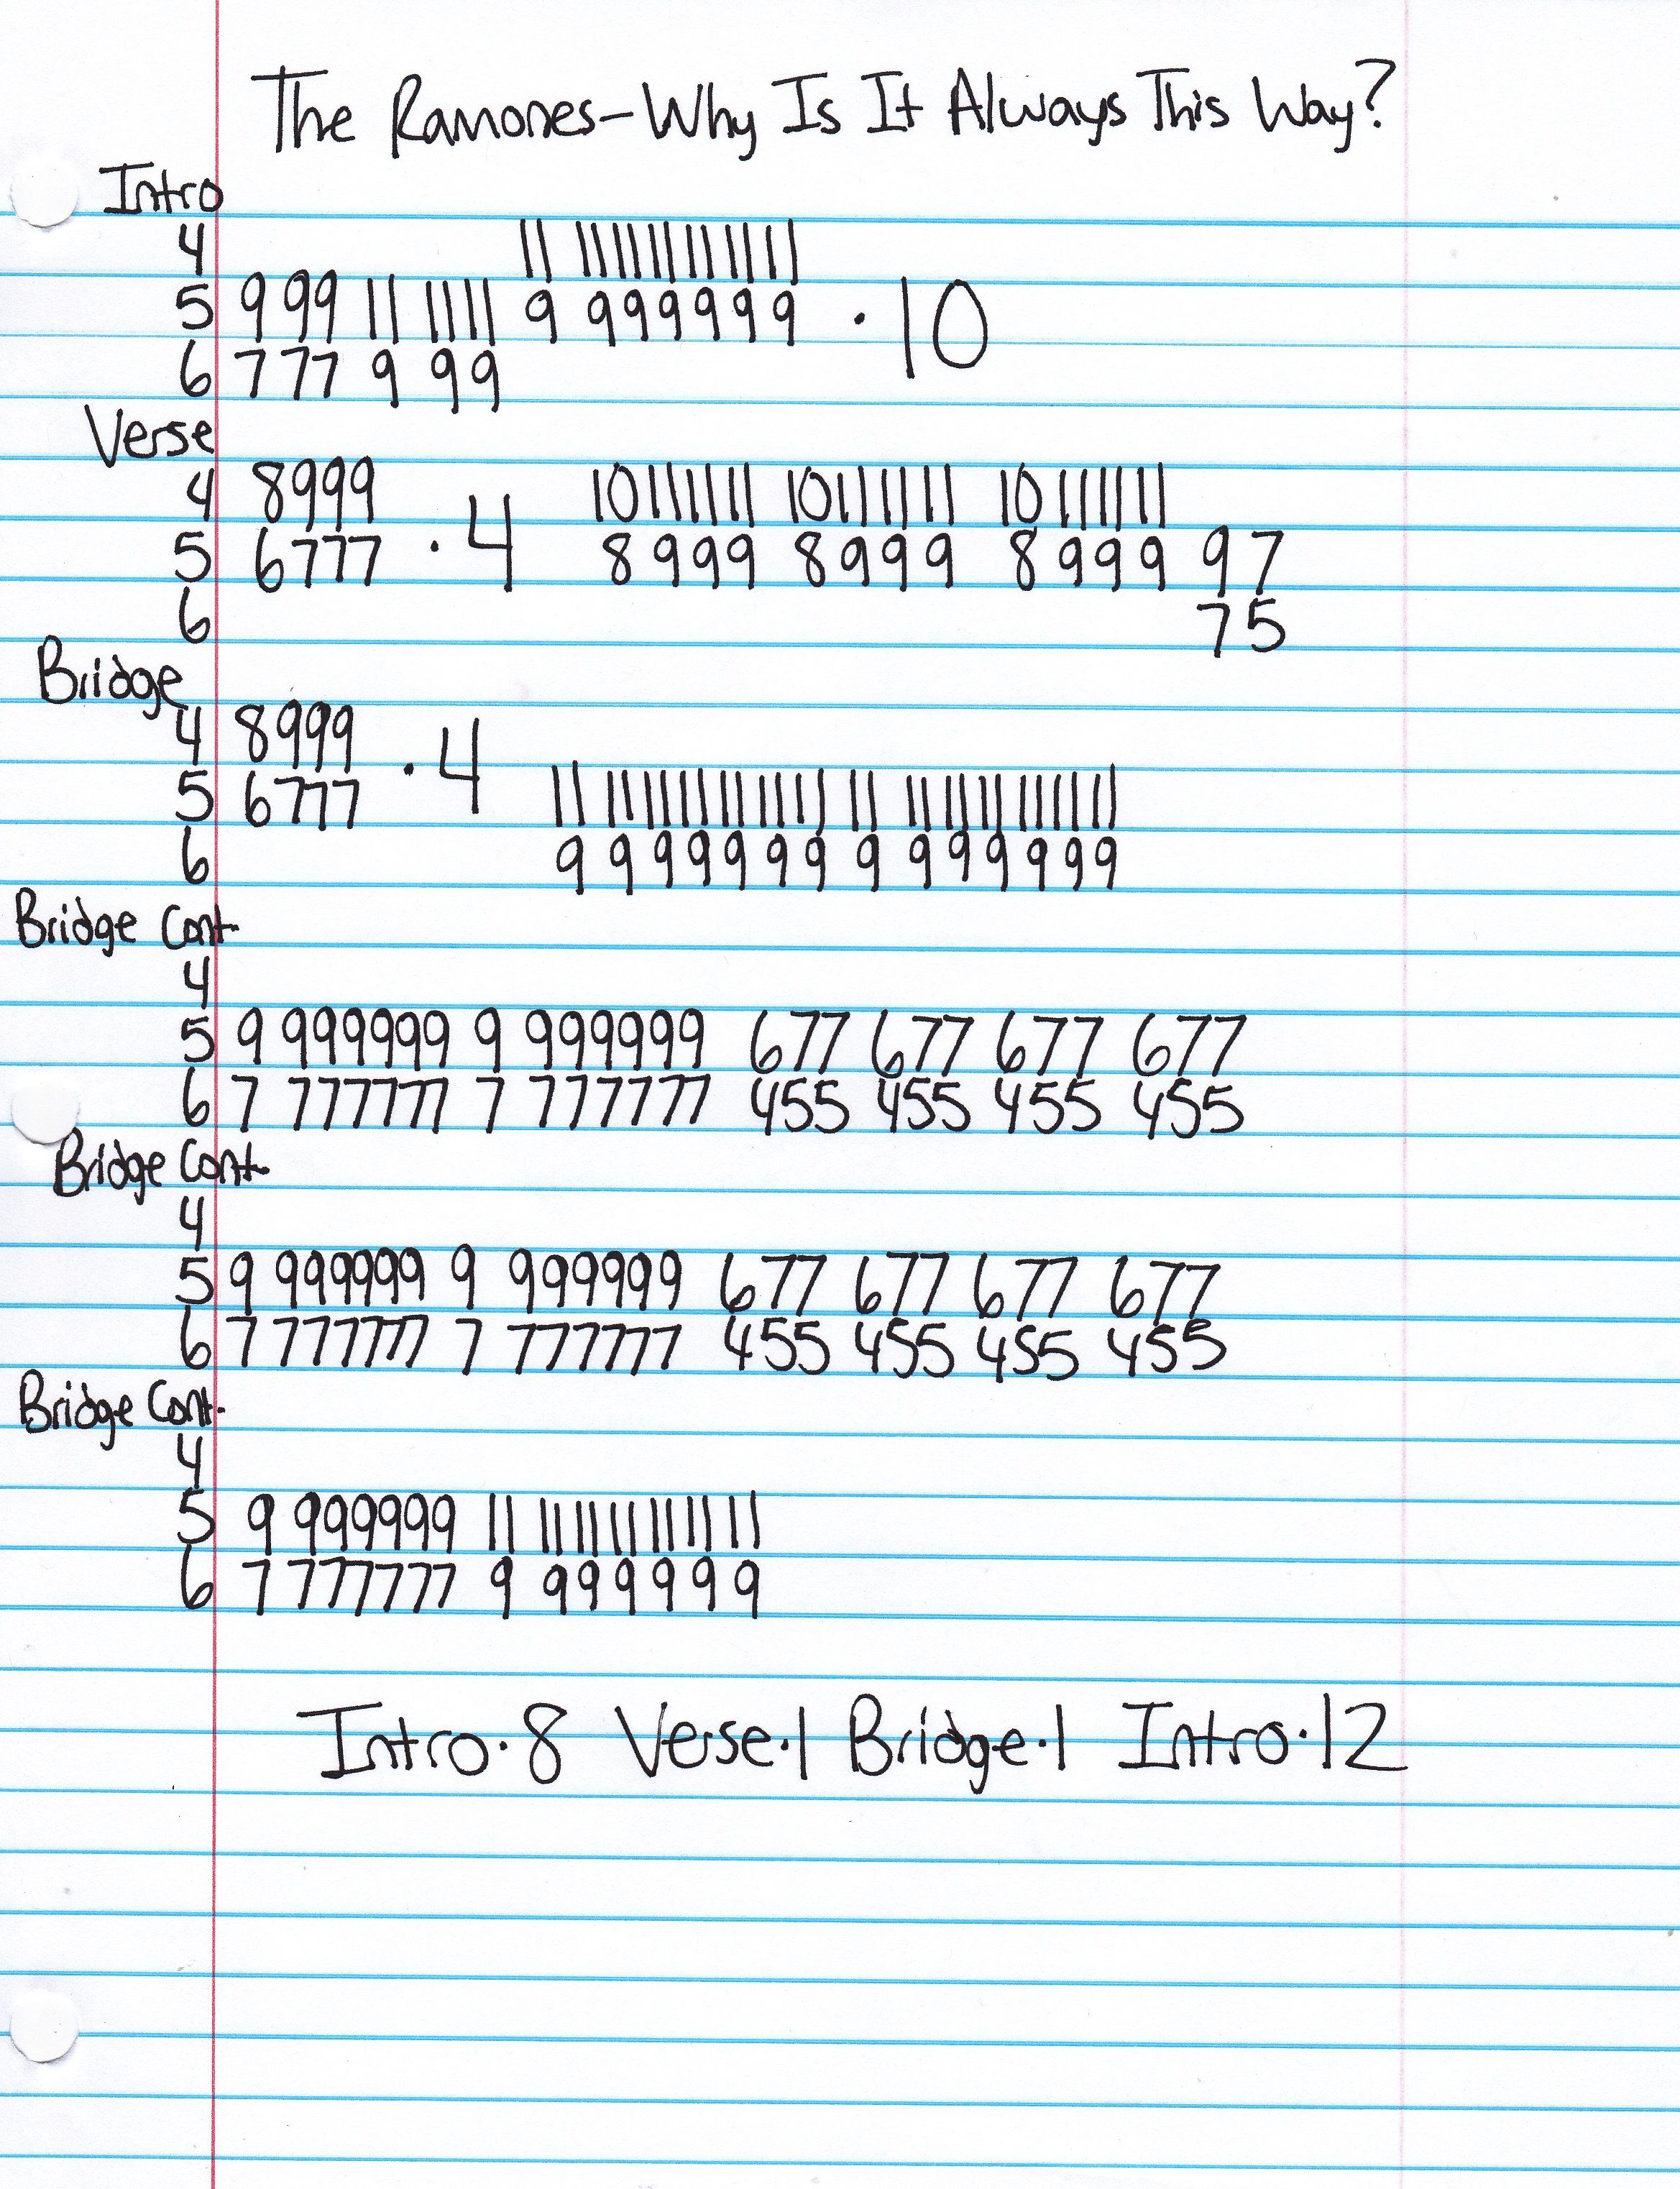 The Ramones-Why Is It Always This Way?
Intro
4 11 111111111111
5 9 99 11 1111 9 999999 · 10
6 7 77 9 99
Verse
4 8999 · 4 10111111 10111111 10111111
5 6777 8999 8999 8999 97
6 75
Bridge
4 8999 · 4
5 6777 11 111111111111 11 111111111111
6 9 999999 9 999999
Bridge Cont.
4
5 9 999999 9 999999 677 677 677 677
6 7 777777 7 777777 455 455 455 455
Bridge Cont.
4
5 9 999999 9 999999 677 677 677 677
6 7 777777 7 777777 455 455 455 455
Bridge Cont.
4
5 9 999999 11 111111111111
6 7 777777 9 999999
Intro·8 Verse·1 Bridge·1 Intro·12